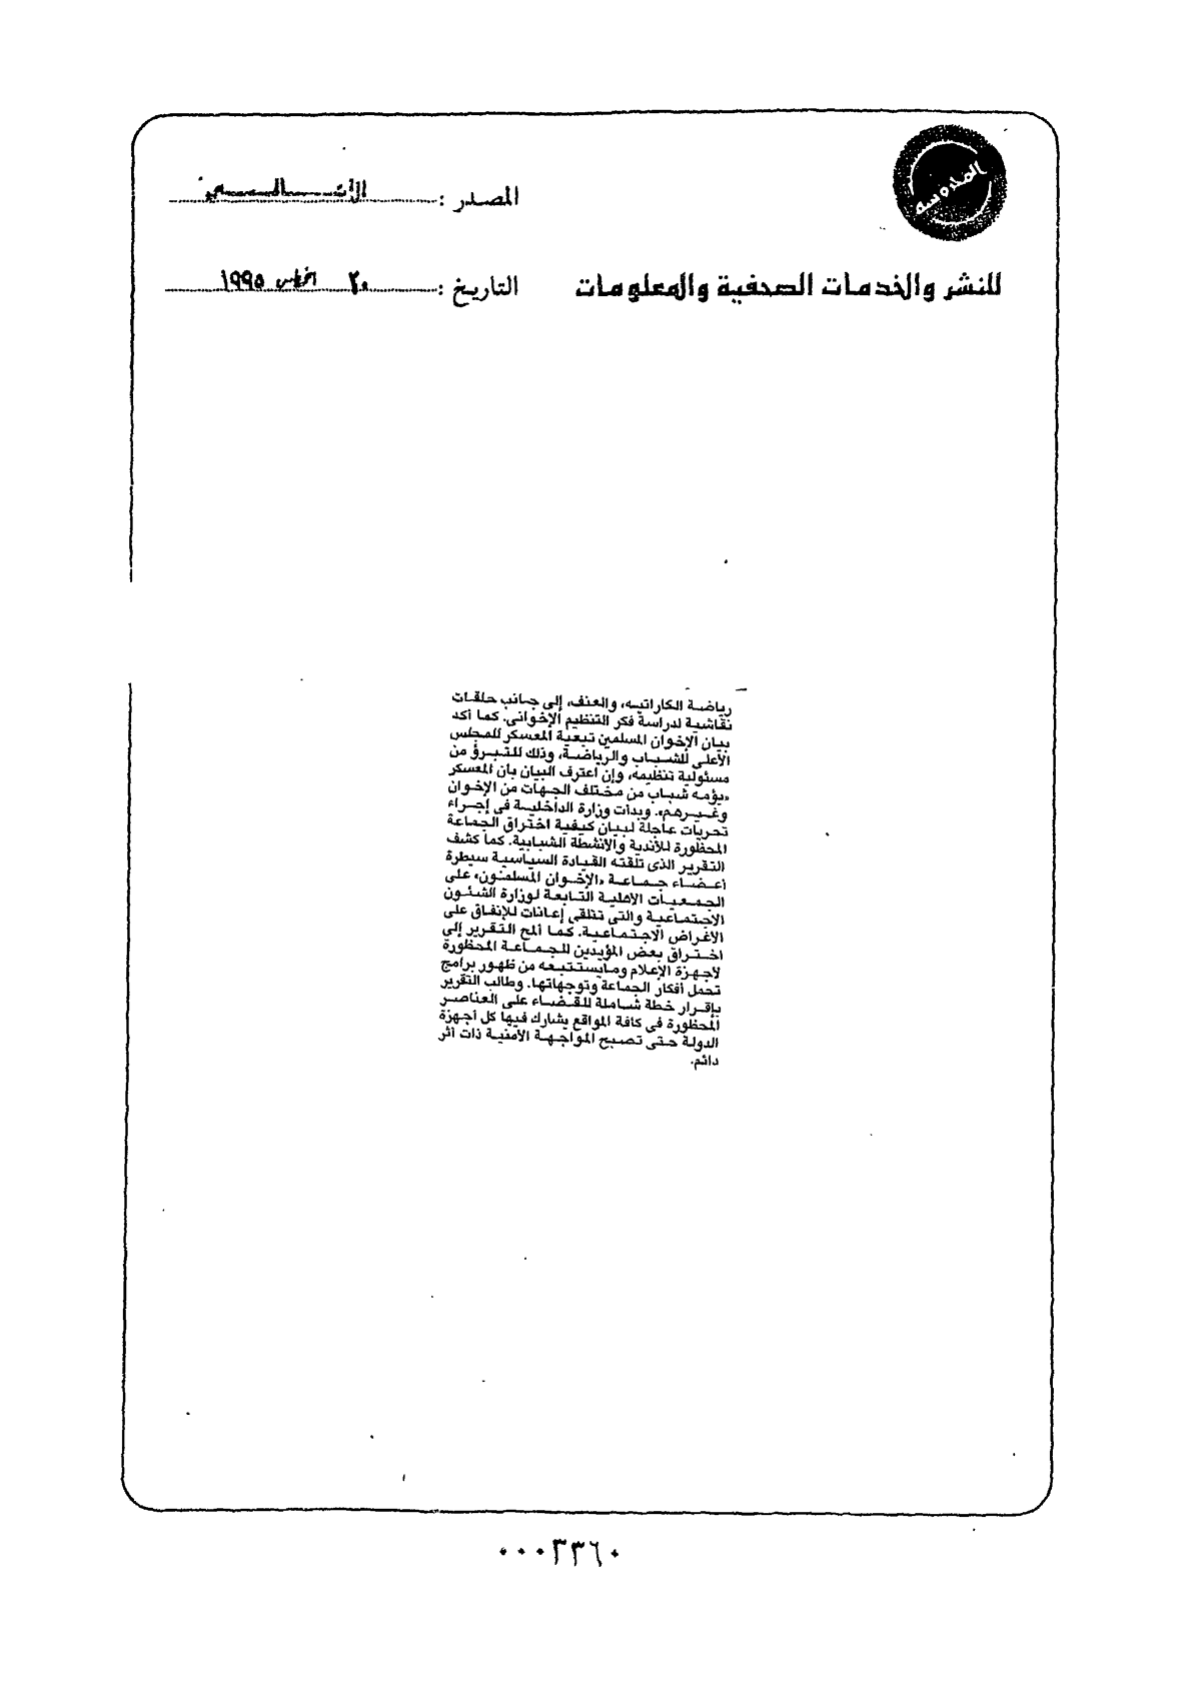 المصدر :
للنشر والخدمات الصحفية والمعلومات
التاريخ : ٢٠ اغسطس ١٩٩٥
رياضة الكاراتيه، والعنف، إلى جانب حلقات
نقاشية لدراسة فكر التنظيم الإخوانى. كما أكد
بيان الإخوان المسلمين تبعية المعسكر للمجلس
الأعلى للشباب والرياضة، وذلك للتبرؤ من
مسئولية تنظيمه، وإن اعترف البيان بأن المعسكر
«يؤمه شباب من مختلف الجهات من الإخوان
وغيرهم». وبدأت وزارة الداخلية فى إجراء
تحريات عاجلة لبيان كيفية اختراق الجماعة
المحظورة للأندية والأنشطة الشبابية. كما كشف
التقرير الذى تلقته القيادة السياسية سيطرة
أعضاء جماعة «الإخوان المسلمون» على
الجمعيات الأهلية التابعة لوزارة الشئون
الاجتماعية والتى تتلقى إعانات للإنفاق على
الأغراض الاجتماعية. كما ألمح التقرير إلى
اختراق بعض المؤيدين للجماعة المحظورة
لأجهزة الإعلام ومايستتبعه من ظهور برامج
تحمل أفكار الجماعة وتوجهاتها. وطالب التقرير
بإقرار خطة شاملة للقضاء على العناصر
المحظورة فى كافة المواقع يشارك فيها كل أجهزة
الدولة حتى تصبح المواجهة الأمنية ذات أثر
دائم.
٠٠٠٣٣٦٠